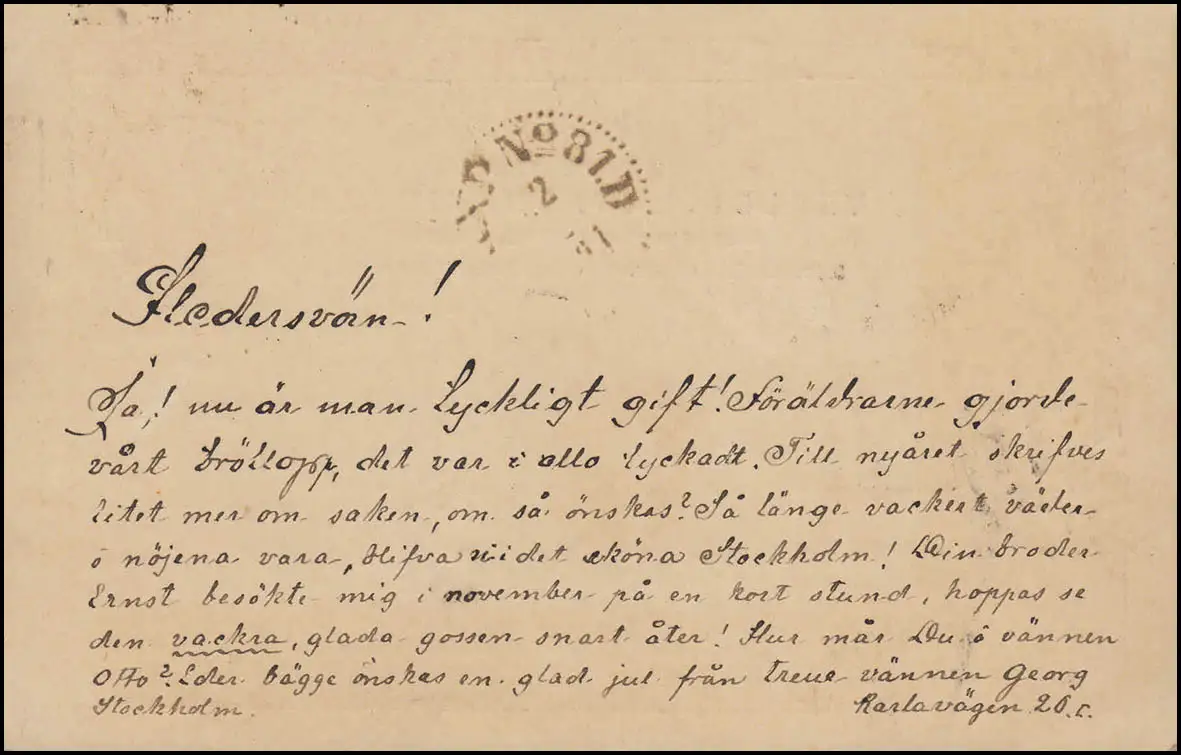 No 81.D
2
Hedersvän!
Ja! nu är man lyckligt gift! Föräldrarne gjorde
vårt bröllopp, det var i allo lyckadt. Till nyåret skrifves
litet mer om saken, om så önskas? Så länge vackert väder
o nöjena vara, blifva vi i det sköna Stockholm! Din broder
Ernst besökte mig i november på en kort stund, hoppas se
den vackra, glada gossen snart åter! Hur mår Du o vännen
Otto? Eder bägge önskas en glad jul från treue vännen Georg
Stockholm. Karlavägen 20.c.